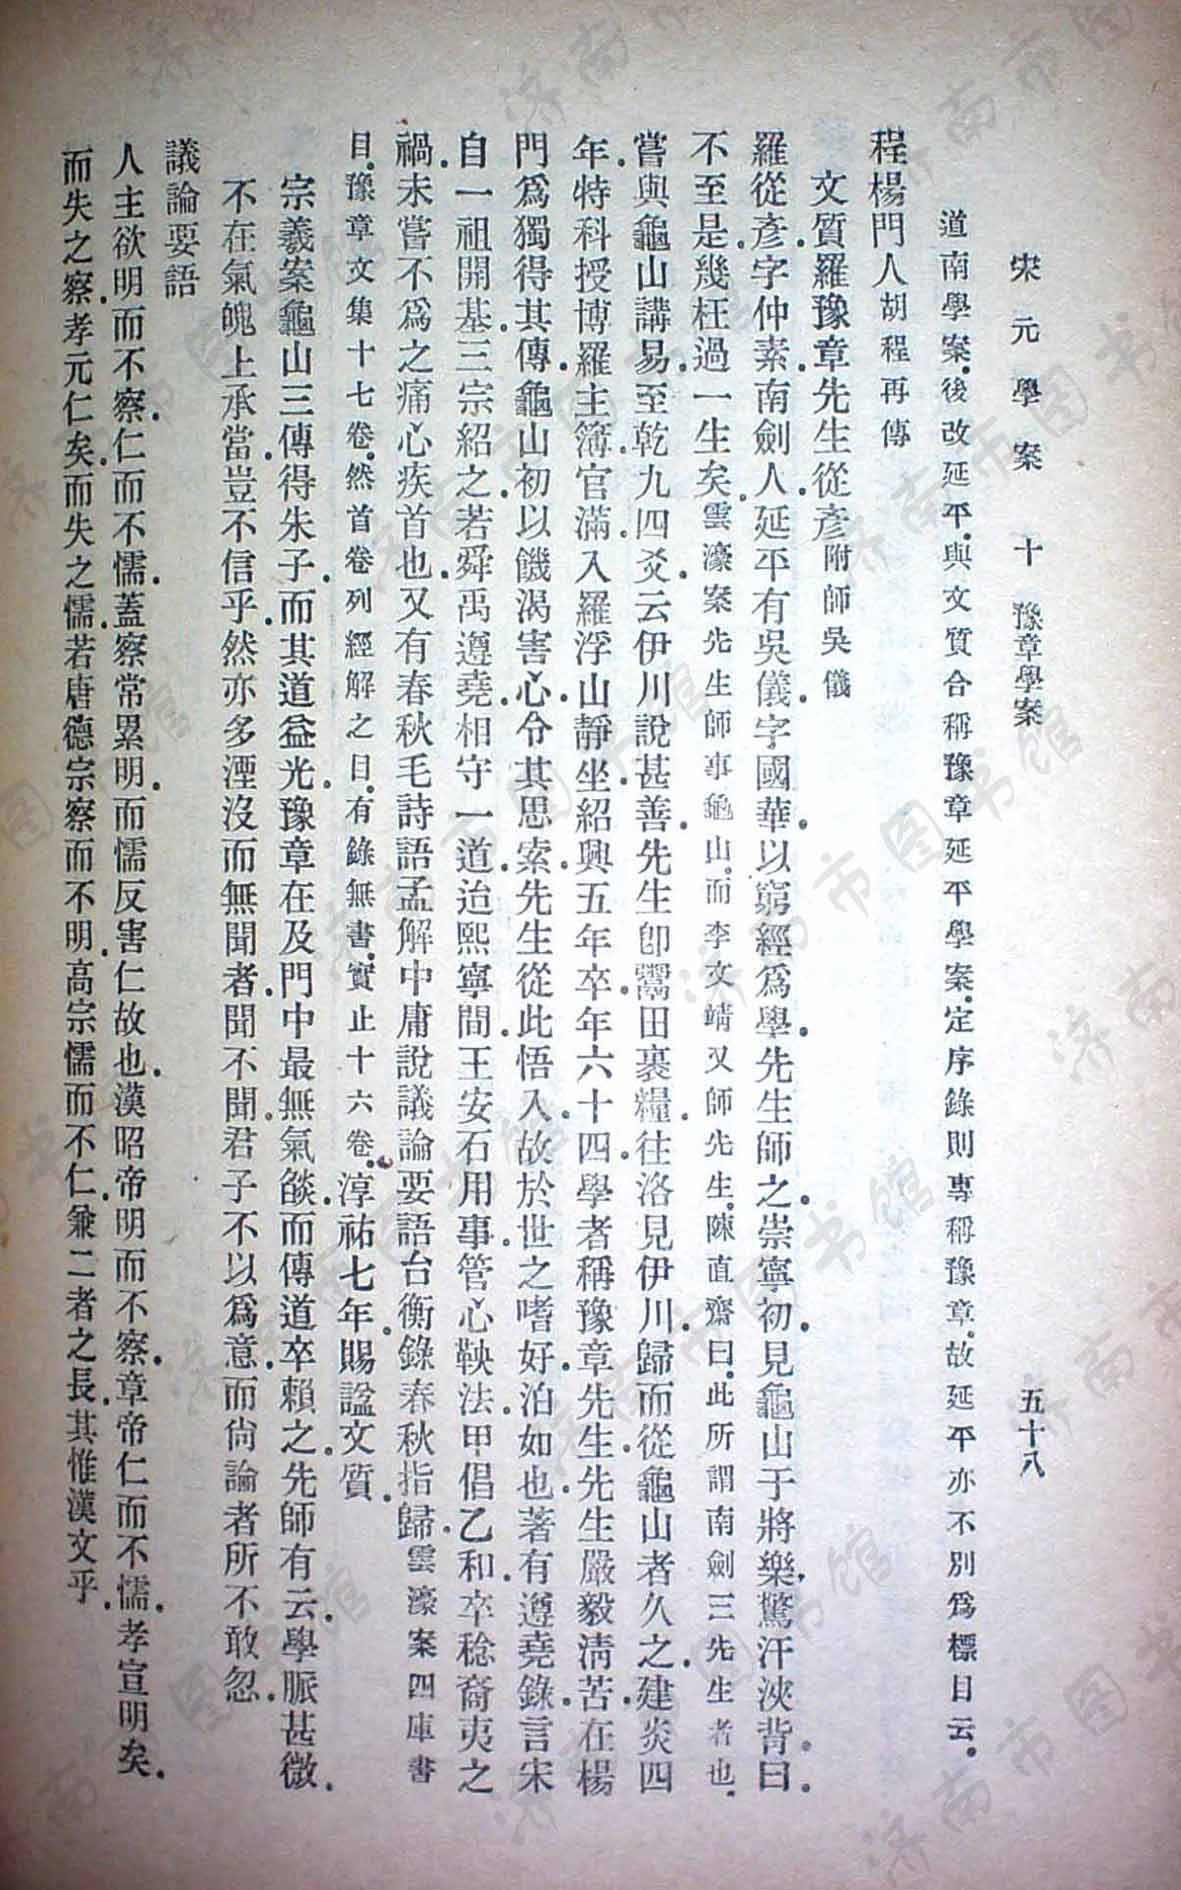 宋元學案　十　豫章學案　五十八
道南學案．後改延平．與文質合稱豫章延平學案．定序錄則專稱豫章．故延平亦不別爲標目云．
程楊門人胡程再傳
文質羅豫章先生從彥附師吳儀
羅從彥．字仲素．南劍人．延平有吳儀．字國華．以窮經爲學．先生師之．崇寧初．見龜山于將樂．驚汗浹背．曰．
不至是．幾枉過一生矣．雲濠案先生師事龜山．而李文靖又師先生．陳直齋曰．此所謂南劍三先生者也．
嘗與龜山講易．至乾九四爻．云伊川說甚善．先生卽鬻田裹糧．往洛見伊川．歸而從龜山者久之．建炎四
年．特科授博羅主簿．官滿．入羅浮山靜坐．紹興五年卒．年六十四．學者稱豫章先生．先生嚴毅淸苦．在楊
門爲獨得其傳．龜山初以饑渴害心．令其思索．先生從此悟入．故於世之嗜好．泊如也．著有遵堯錄．言宋
自一祖開基．三宗紹之．若舜禹遵堯．相守一道．迨熙寧間．王安石用事．管心鞅法．甲倡乙和．卒稔裔夷之
禍．未嘗不爲之痛心疾首也．又有春秋毛詩語孟解中庸說議論要語台衡錄春秋指歸．雲濠案四庫書
目．豫章文集十七卷．然首卷列經解之目．有錄無書．實止十六卷．淳祐七年．賜諡文質．
宗羲案龜山三傳得朱子．而其道益光．豫章在及門中．最無氣燄．而傳道卒賴之．先師有云．學脈甚微．
不在氣魄上承當．豈不信乎．然亦多湮沒而無聞者．聞不聞．君子不以爲意．而尚論者所不敢忽．
議論要語
人主欲明而不察．仁而不懦．蓋察常累明．而懦反害仁故也．漢昭帝明而不察．章帝仁而不懦．孝宣明矣．
而失之察．孝元仁矣．而失之懦．若唐德宗察而不明．高宗懦而不仁．兼二者之長．其惟漢文乎．
济南市图书馆